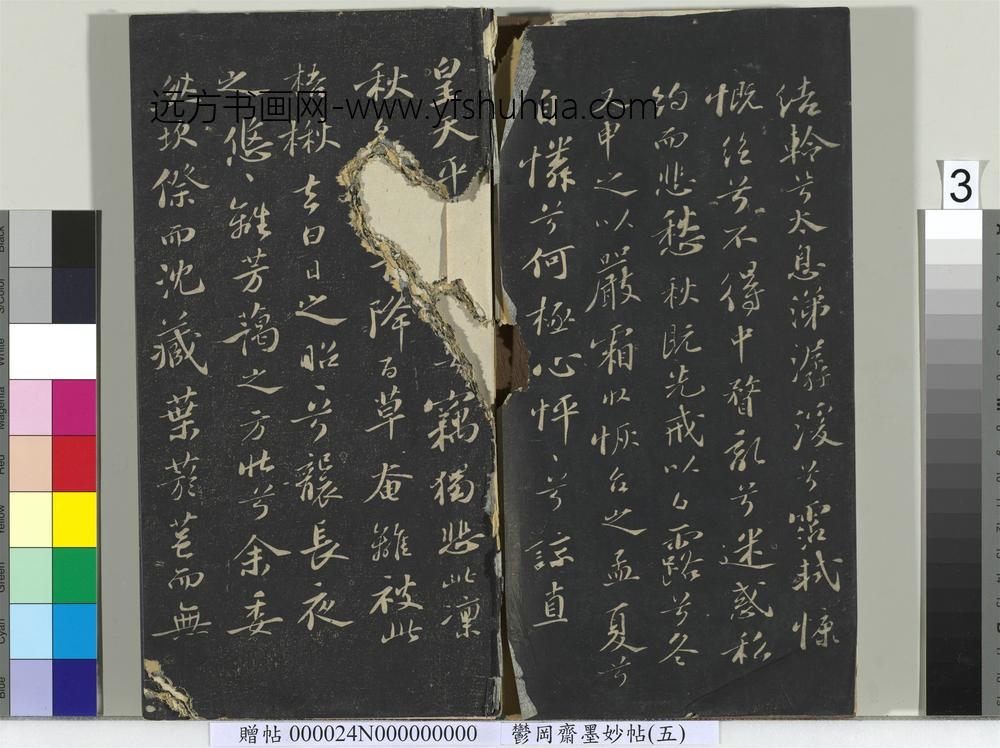 結軨兮太息涕潺湲兮霑軾慷
慨絕兮不得中瞀亂兮迷惑私
自憐兮何極心怦〻兮諒直
皇天平
竊獨悲此凜
秋
降百草奄離被此
梧楸去白日之昭〻兮襲長夜
之悠〻離芳藹之方壯兮余委
約而悲愁秋既先戒以白露兮冬
又申之以嚴霜收恢台之孟夏兮
然坎傺而沈藏葉菸芑而無
远方书画网-www.yfshuhua.com
3
贈帖 000024N000000000 鬱岡齋墨妙帖(五)